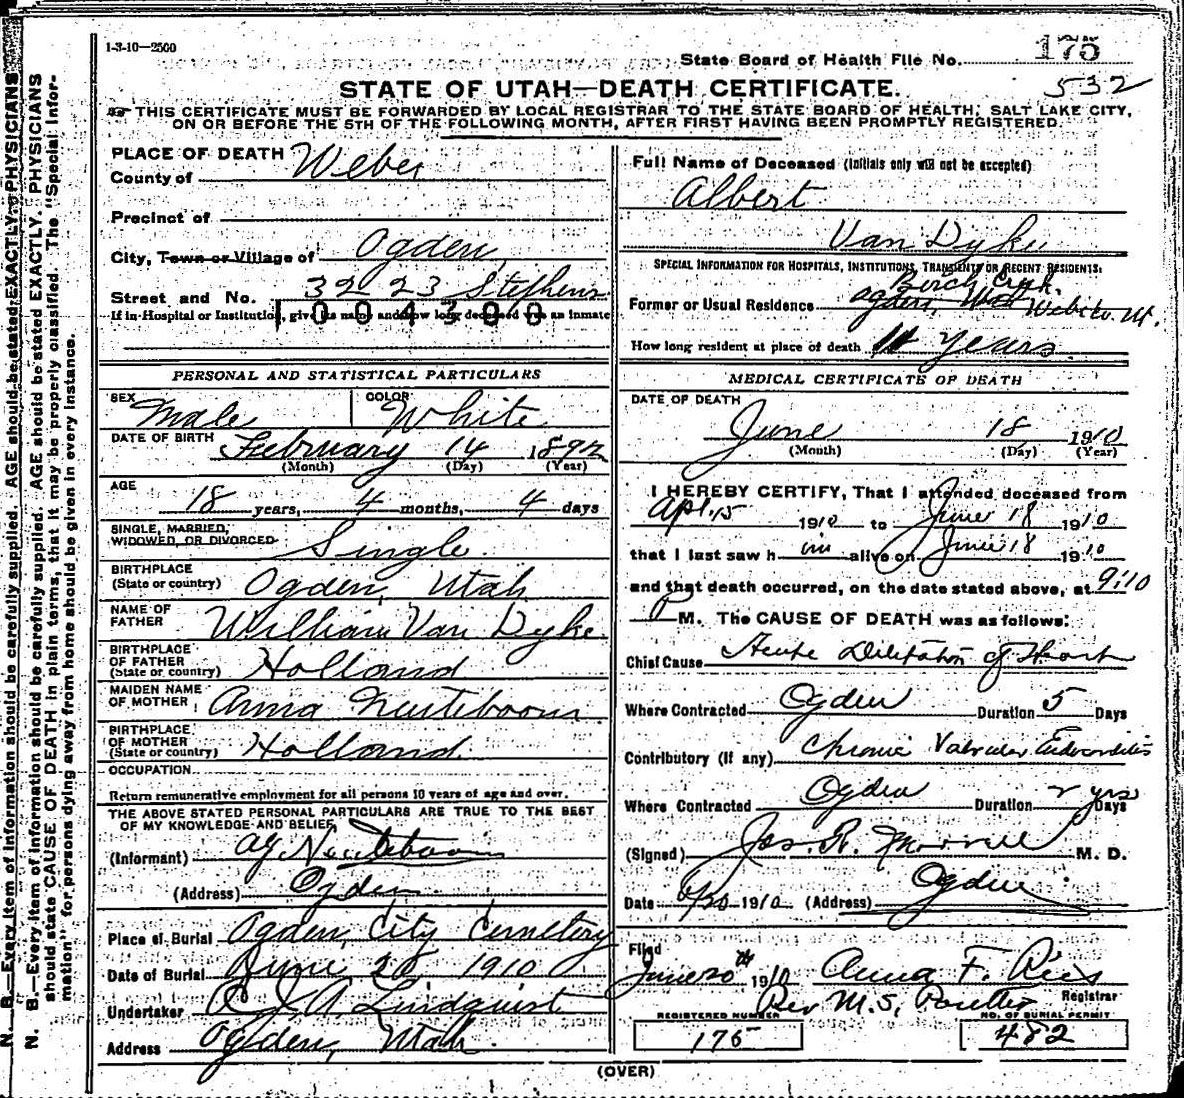 1-3-10—2500
State Board of Health File No. 175
532
STATE OF UTAH—DEATH CERTIFICATE.
THIS CERTIFICATE MUST BE FORWARDED BY LOCAL REGISTRAR TO THE STATE BOARD OF HEALTH, SALT LAKE CITY,
ON OR BEFORE THE 5TH OF THE FOLLOWING MONTH, AFTER FIRST HAVING BEEN PROMPTLY REGISTERED.
PLACE OF DEATH
County of Weber
Precinct of
City, Town or Village of Ogden
Street and No. 3223 Stephens
If in Hospital or Institution, give its name and how long deceased was an inmate
1004300
PERSONAL AND STATISTICAL PARTICULARS
SEX Male COLOR White
DATE OF BIRTH February 14 1892
(Month) (Day) (Year)
AGE
18 years, 4 months, 4 days
SINGLE, MARRIED,
WIDOWED, OR DIVORCED Single
BIRTHPLACE
(State or country) Ogden, Utah
NAME OF
FATHER William Van Dyke
BIRTHPLACE
OF FATHER
(State or country) Holland
MAIDEN NAME
OF MOTHER Anna Neuteboom
BIRTHPLACE
OF MOTHER
(State or country) Holland
OCCUPATION
Return remunerative employment for all persons 10 years of age and over.
THE ABOVE STATED PERSONAL PARTICULARS ARE TRUE TO THE BEST
OF MY KNOWLEDGE AND BELIEF
(Informant) Neuteboom
(Address) Ogden
Place of Burial Ogden City Cemetery
Date of Burial June 20 1910
Undertaker Lindquist
Address Ogden, Utah.
Full Name of Deceased (Initials only will not be accepted)
Albert
Van Dyke
SPECIAL INFORMATION FOR HOSPITALS, INSTITUTIONS, TRANSIENTS OR RECENT RESIDENTS:
Birch Crk.
Former or Usual Residence Ogden, Weber Co. Ut.
How long resident at place of death years
MEDICAL CERTIFICATE OF DEATH
DATE OF DEATH
June 18 1910
(Month) (Day) (Year)
I HEREBY CERTIFY, That I attended deceased from
Apl. 15 1910 to June 18 1910
that I last saw him alive on June 18 1910
and that death occurred, on the date stated above, at 9:10
P M. The CAUSE OF DEATH was as follows:
Chief Cause Acute Dilitation of Heart
Where Contracted Ogden Duration 5 Days
Contributory (If any) Chronic Valvular Endocarditis
Where Contracted Ogden Duration 2 yrs Days
(Signed) Jos. R. Morrell M. D.
Date 6/20 1910 (Address) Ogden
Filed
June 20th 1910 Anna F. Ries
Per M. S. Registrar
REGISTERED NUMBER
175
NO. OF BURIAL PERMIT
482
(OVER)
N. B.—Every item of information should be carefully supplied. AGE should be stated EXACTLY. PHYSICIANS
should state CAUSE OF DEATH in plain terms, that it may be properly classified. The "Special Infor-
mation" for persons dying away from home should be given in every instance.